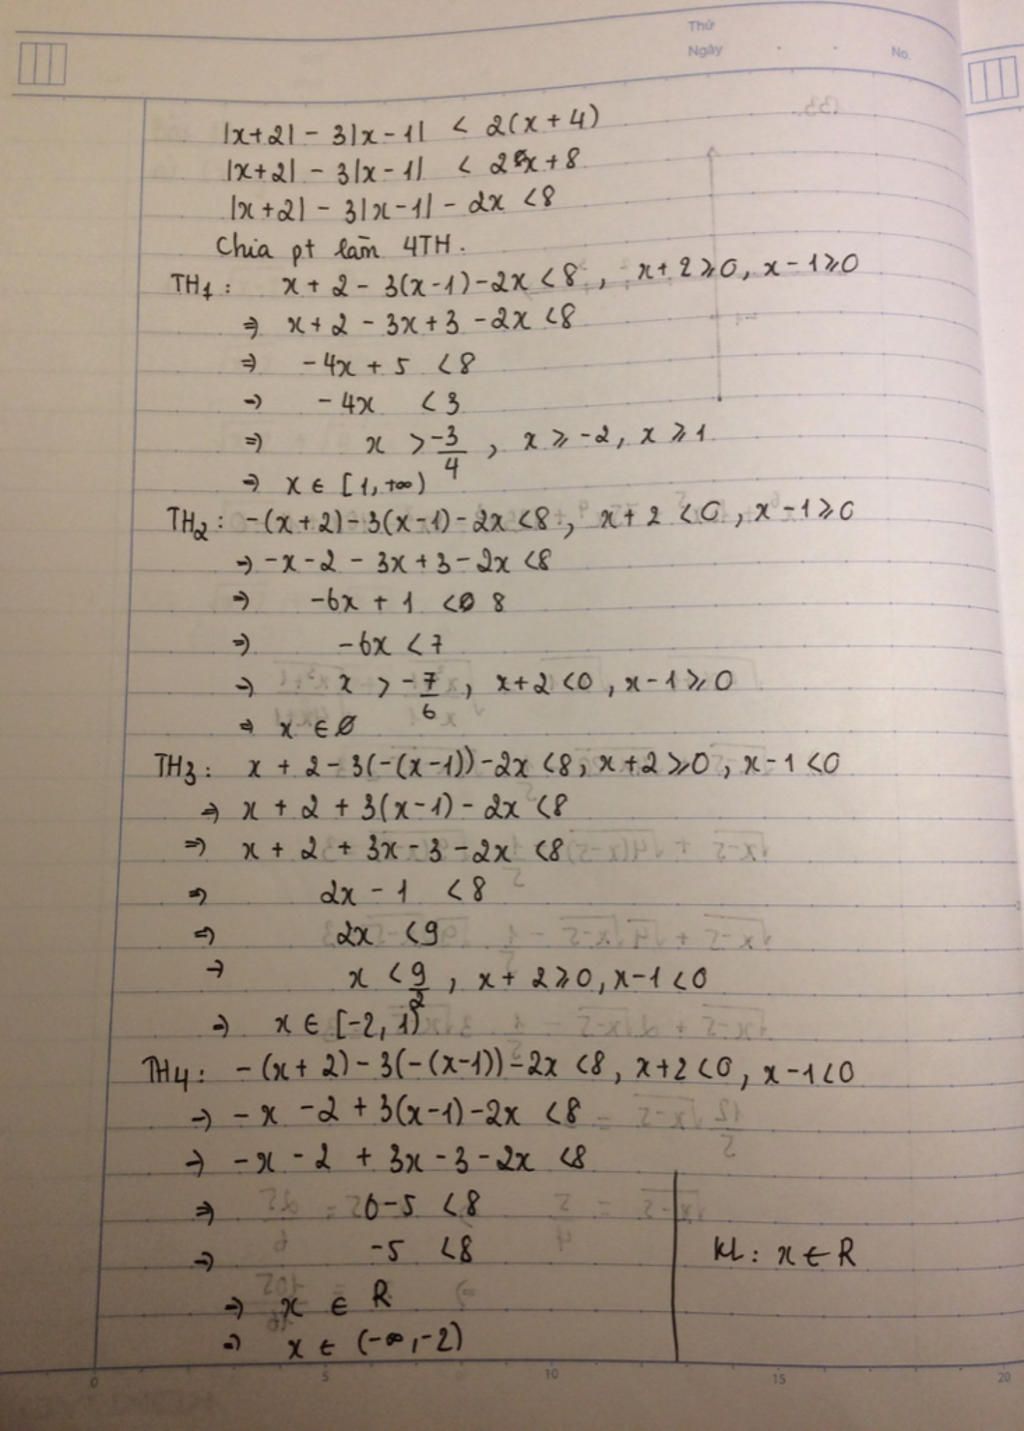 Thứ
Ngày . . No.
|x+2| - 3|x-1| < 2(x+4)
|x+2| - 3|x-1| < 2x+8
|x+2| - 3|x-1| - 2x <8
Chia pt làm 4TH.
TH1: x+2 - 3(x-1)-2x <8, x+2≥0, x-1≥0
⇒ x+2 - 3x+3 -2x <8
⇒ -4x + 5 <8
⇒ -4x <3
⇒ x > -3/4, x ≥ -2, x ≥ 1
⇒ x ∈ [1, +∞)
TH2: -(x+2)-3(x-1)-2x<8, x+2 <0, x-1≥0
⇒ -x-2 - 3x+3-2x <8
⇒ -6x + 1 < 8
⇒ -6x <7
⇒ x > -7/6, x+2<0, x-1≥0
⇒ x ∈ ∅
TH3: x + 2-3(-(x-1))-2x <8, x+2≥0, x-1<0
⇒ x + 2 + 3(x-1) - 2x <8
⇒ x + 2 + 3x-3-2x <8
⇒ 2x - 1 <8
⇒ 2x <9
⇒ x < 9/2, x+2≥0, x-1<0
⇒ x ∈ [-2, 1)
TH4: -(x+2)-3(-(x-1))-2x <8, x+2<0, x-1<0
⇒ -x -2 + 3(x-1)-2x <8
⇒ -x-2 + 3x-3-2x <8
⇒ 0-5 <8
⇒ -5 <8
KL: x ∈ R
⇒ x ∈ R
⇒ x ∈ (-∞,-2)
0 5 10 15 20